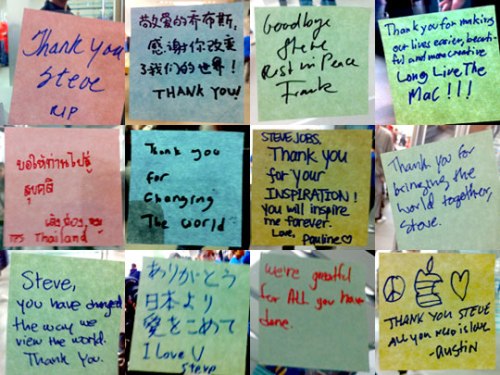 Thank you
Steve
RIP
敬爱的乔布斯,
感谢你改变
了我们的世界!
THANK YOU!
Goodbye
Steve
Rest in Peace
Frank
Thank you for making
our lives easier, beauti-
ful and more creative
Long Live The
Mac!!!
ขอให้ท่านไปสู่
สุขคติ
Thailand
Thank you
for
Changing
The world
STEVE JOBS.
Thank you
for your
INSPIRATION!
you will inspire
me forever.
Love,
Pauline
Thank you for
bringing the
world together,
Steve.
Steve,
you have changed
the way we
view the world.
Thank you.
ありがとう
日本より
愛をこめて
I love U
Steve
We're grateful
for ALL you have
done.
THANK YOU STEVE
ALL YOU NEED IS LOVE
-AUSTIN